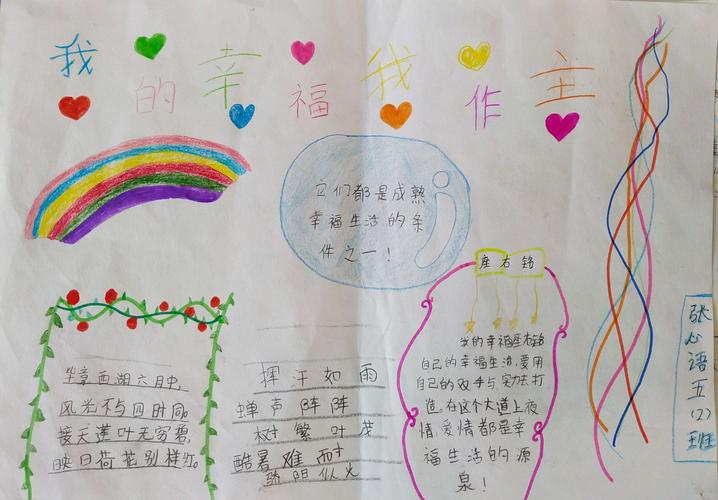 我的幸福我作主
它们都是成熟
幸福生活的条
件之一！
座右铭
的幸福座右铭
自己的幸福生活，要用
自己的双手与实力去打
造，在这个大道上友
情，爱情都是幸
福生活的源
泉！
毕竟西湖六月中，
风光不与四时同。
接天莲叶无穷碧，
映日荷花别样红。
挥汗如雨
蝉声阵阵
树繁叶茂
酷暑难耐
骄阳似火
张心语五(2)班